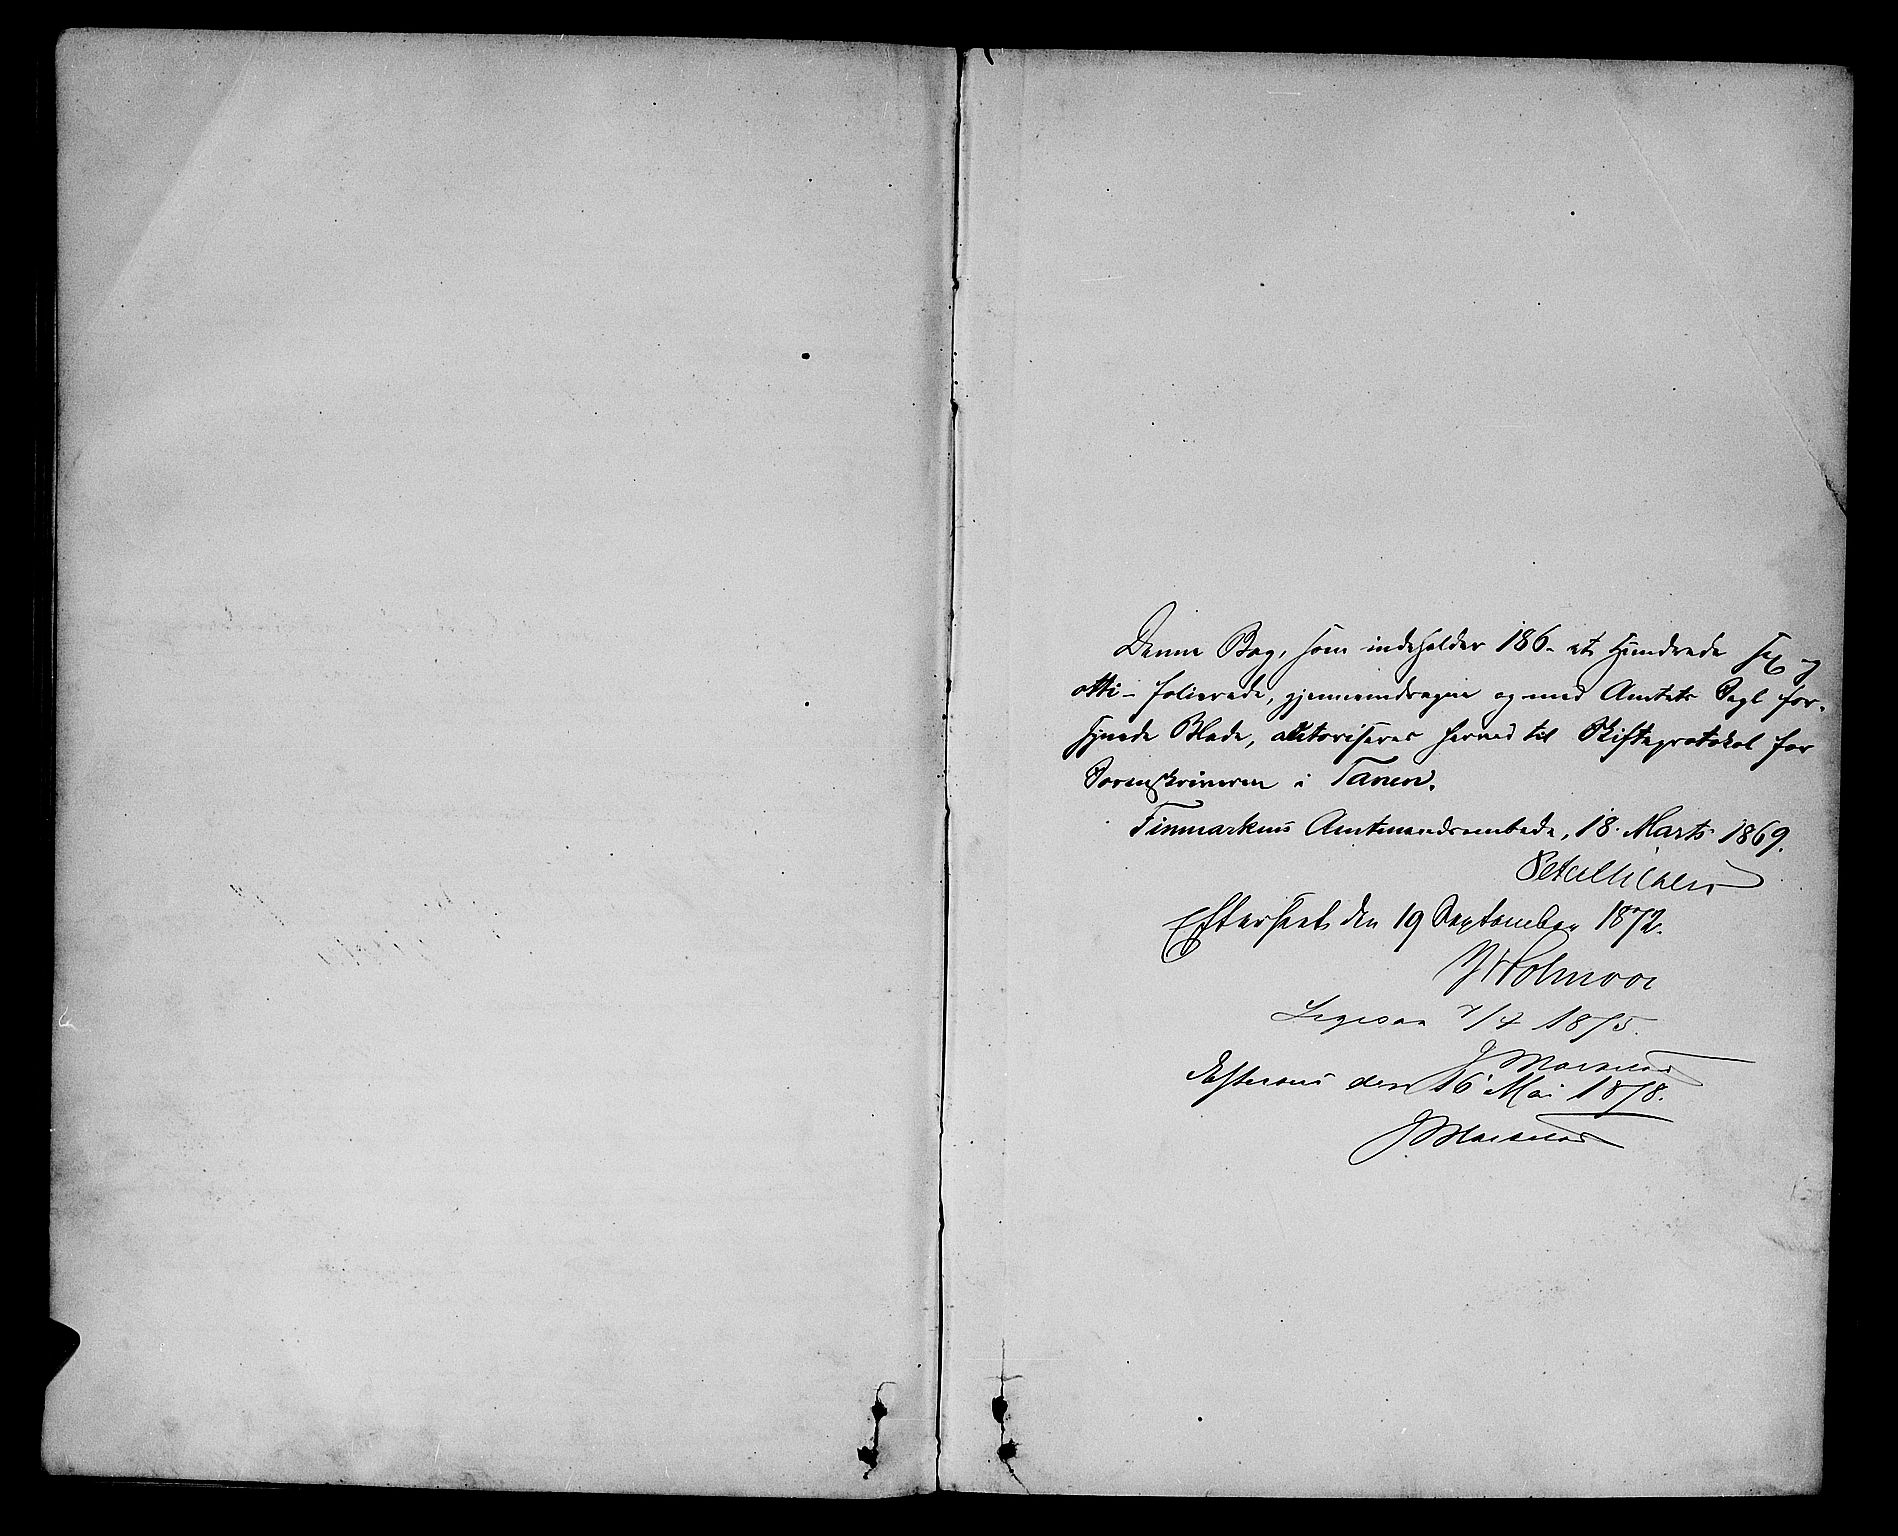 Denne Bog, som indeholder 186 - et Hundrede sex og
otti - folierede, gjennemdragne og med Amtets Segl for-
synede Blade, autoriseres herved til Skifteprotokol for
Sorenskriveren i Tanen.
Finmarkens Amtmandsembede, 18. Marts 1869.
Efterseet den 19 September 1872.
J Holmboe
Ligesaa 7/4 1875.
Eftersees den 16 Mai 1878.